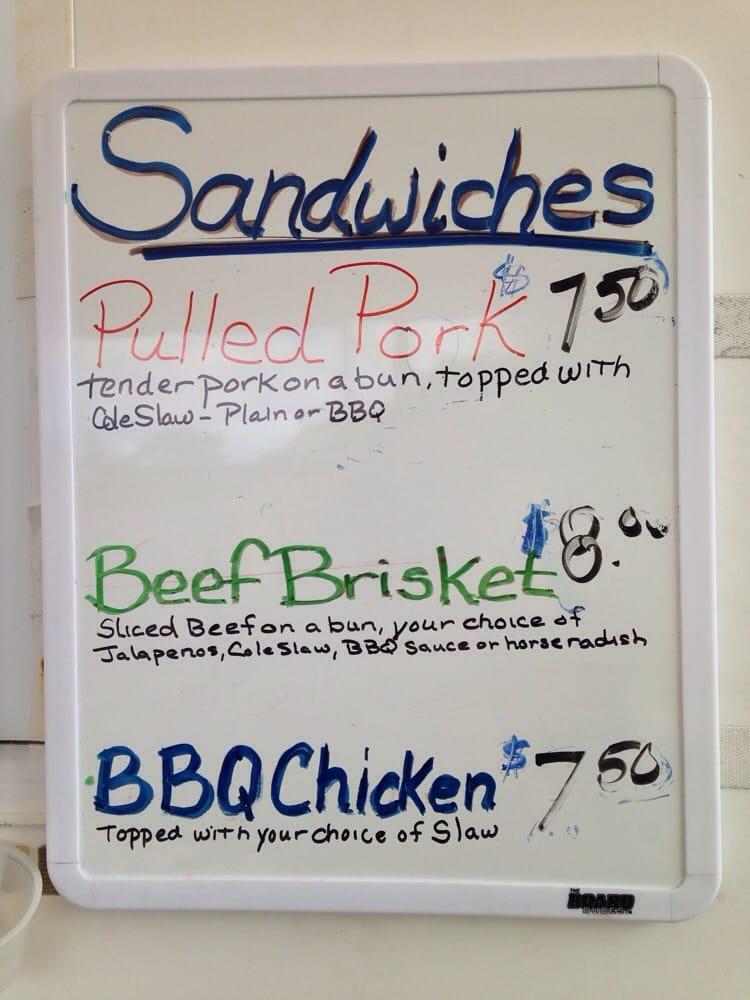 Sandwiches
Pulled Pork $7.50
tender pork on a bun, topped with
Cole Slaw - Plain or BBQ
Beef Brisket $8.00
Sliced Beef on a bun, your choice of
Jalapenos, Cole Slaw, BBQ Sauce or horseradish
BBQ Chicken $7.50
Topped with your choice of Slaw
THE
BOARD
DUDES